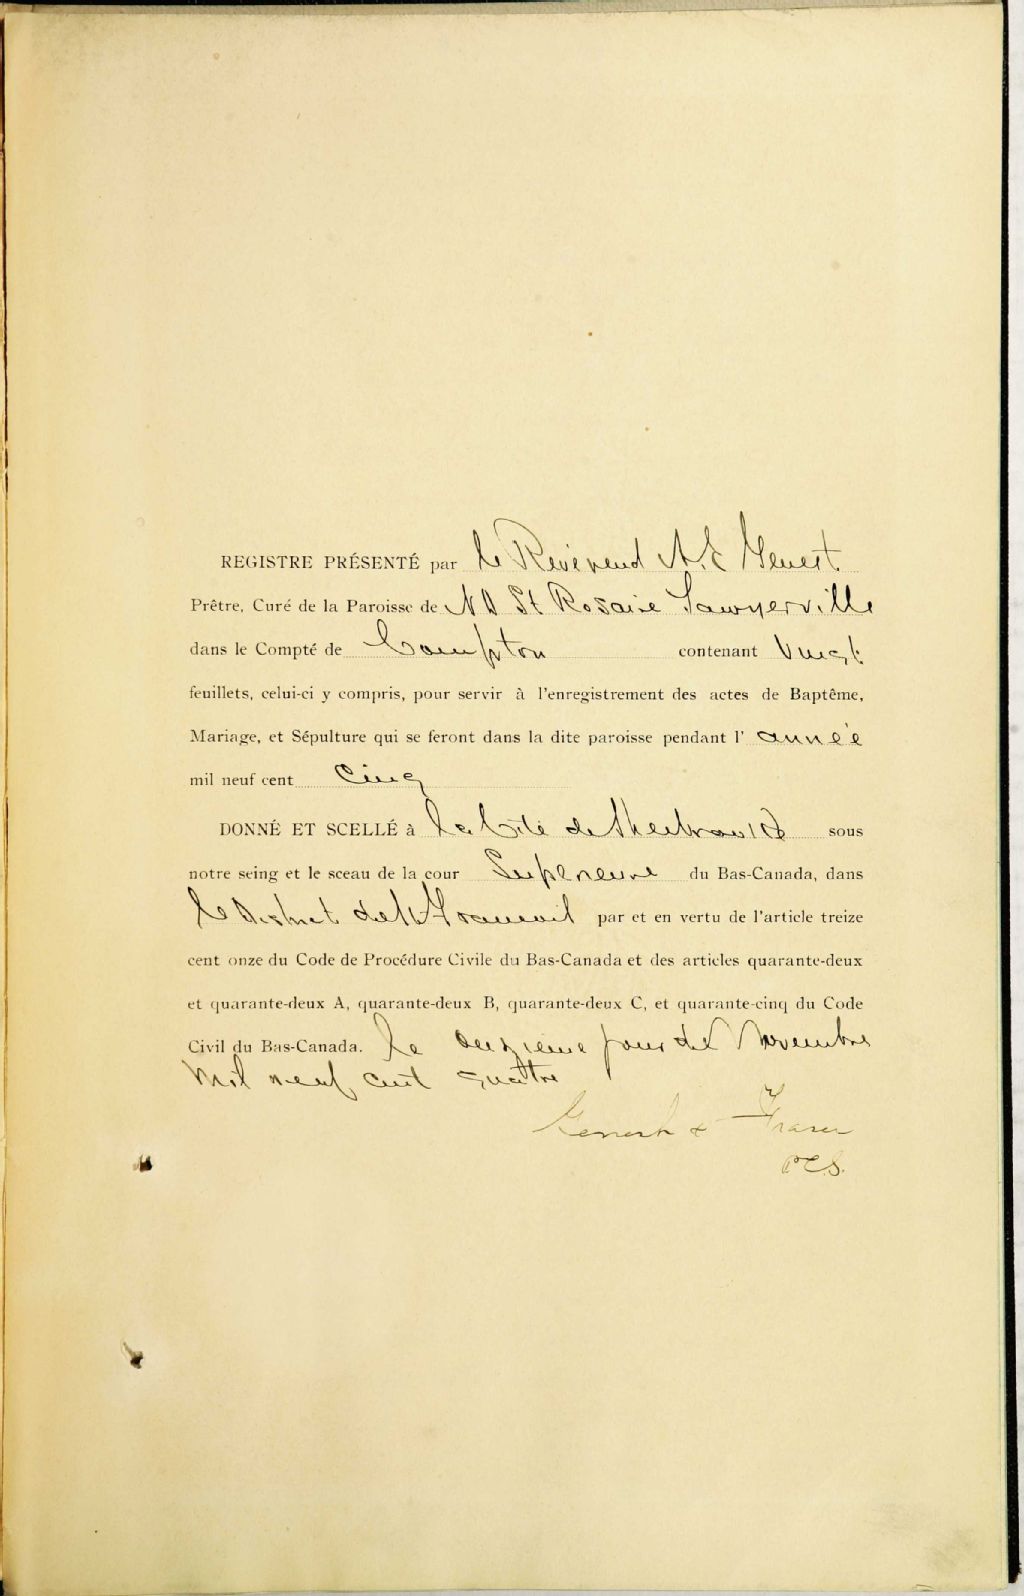 REGISTRE PRÉSENTÉ par le Révérend A. E Genest
Prêtre, Curé de la Paroisse de N D St Rosaire Sawyerville
dans le Compté de Compton contenant Vingt
feuillets, celui-ci y compris, pour servir à l'enregistrement des actes de Baptême,
Mariage, et Sépulture qui se feront dans la dite paroisse pendant l' année
mil neuf cent Cinq
DONNÉ ET SCELLÉ à la Cité de Sherbrooke sous
notre seing et le sceau de la cour Supérieure du Bas-Canada, dans
le District de St Francois par et en vertu de l'article treize
cent onze du Code de Procédure Civile du Bas-Canada et des articles quarante-deux
et quarante-deux A, quarante-deux B, quarante-deux C, et quarante-cinq du Code
Civil du Bas-Canada. le jour de Novembre
Mil neuf cent quatre
& Fraser
P.C.S.